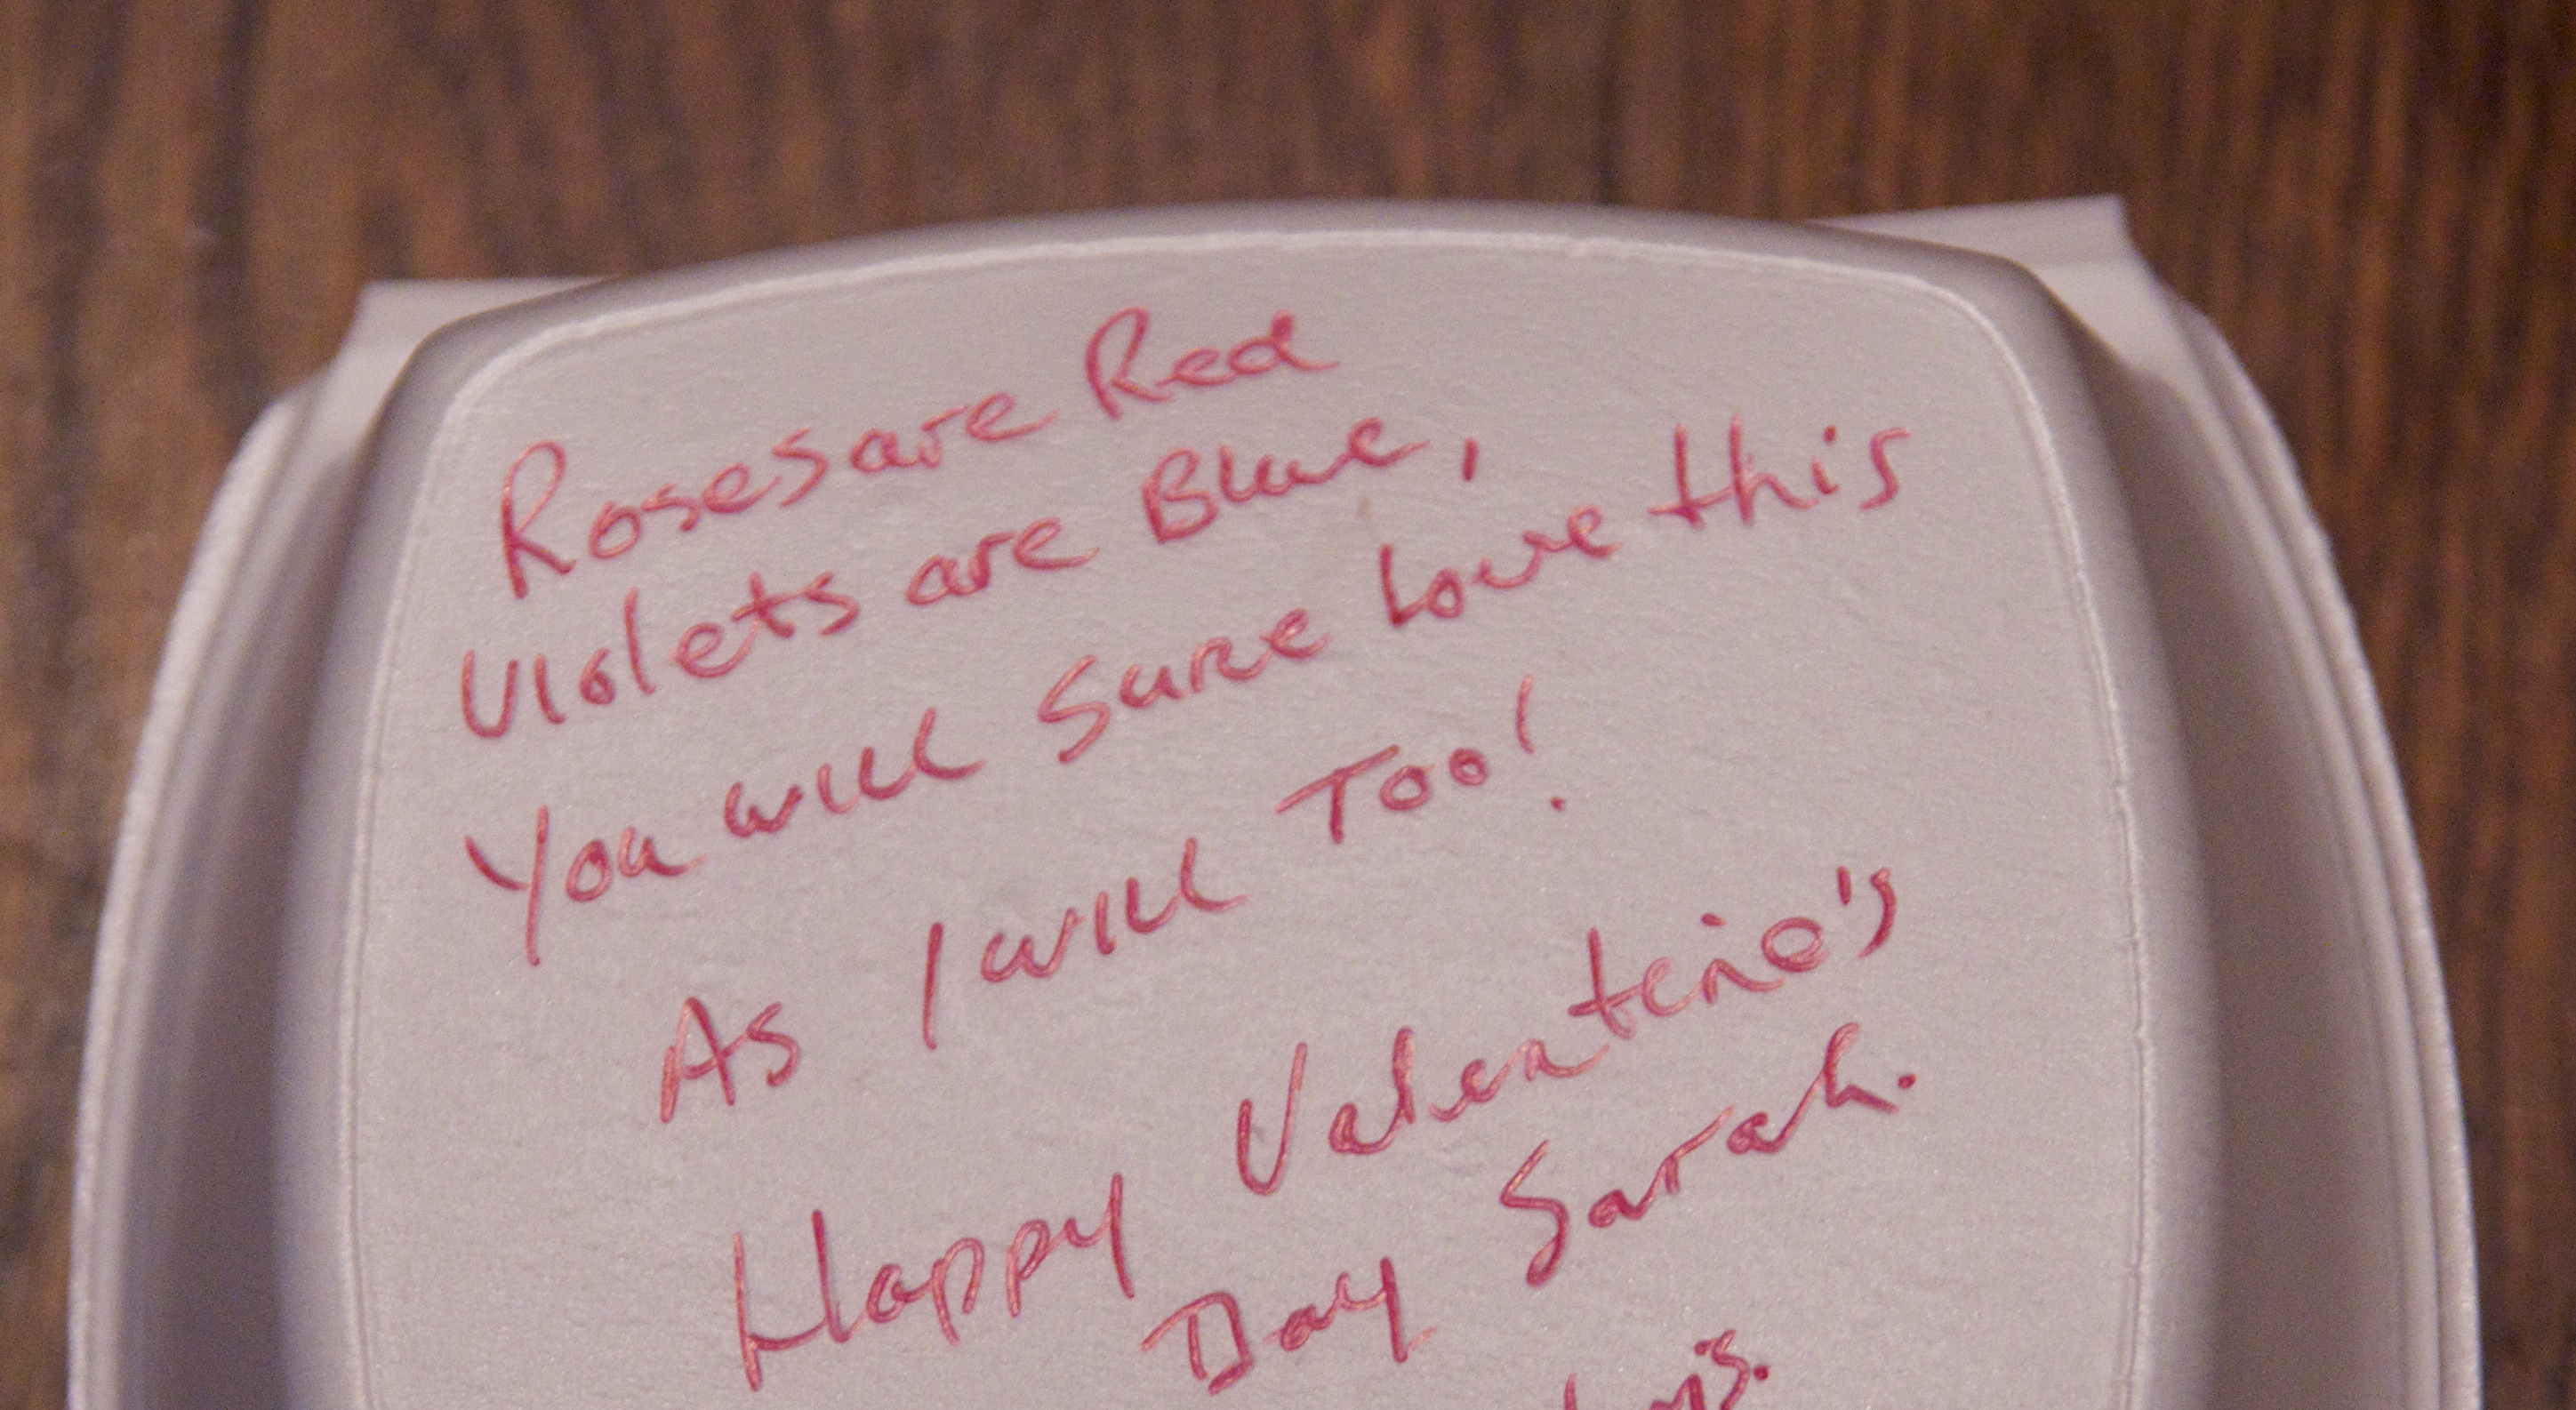 Roses are Red
Violets are Blue,
You will Sure Love this
As I will Too!
Happy Valentine's
Day Sarah.